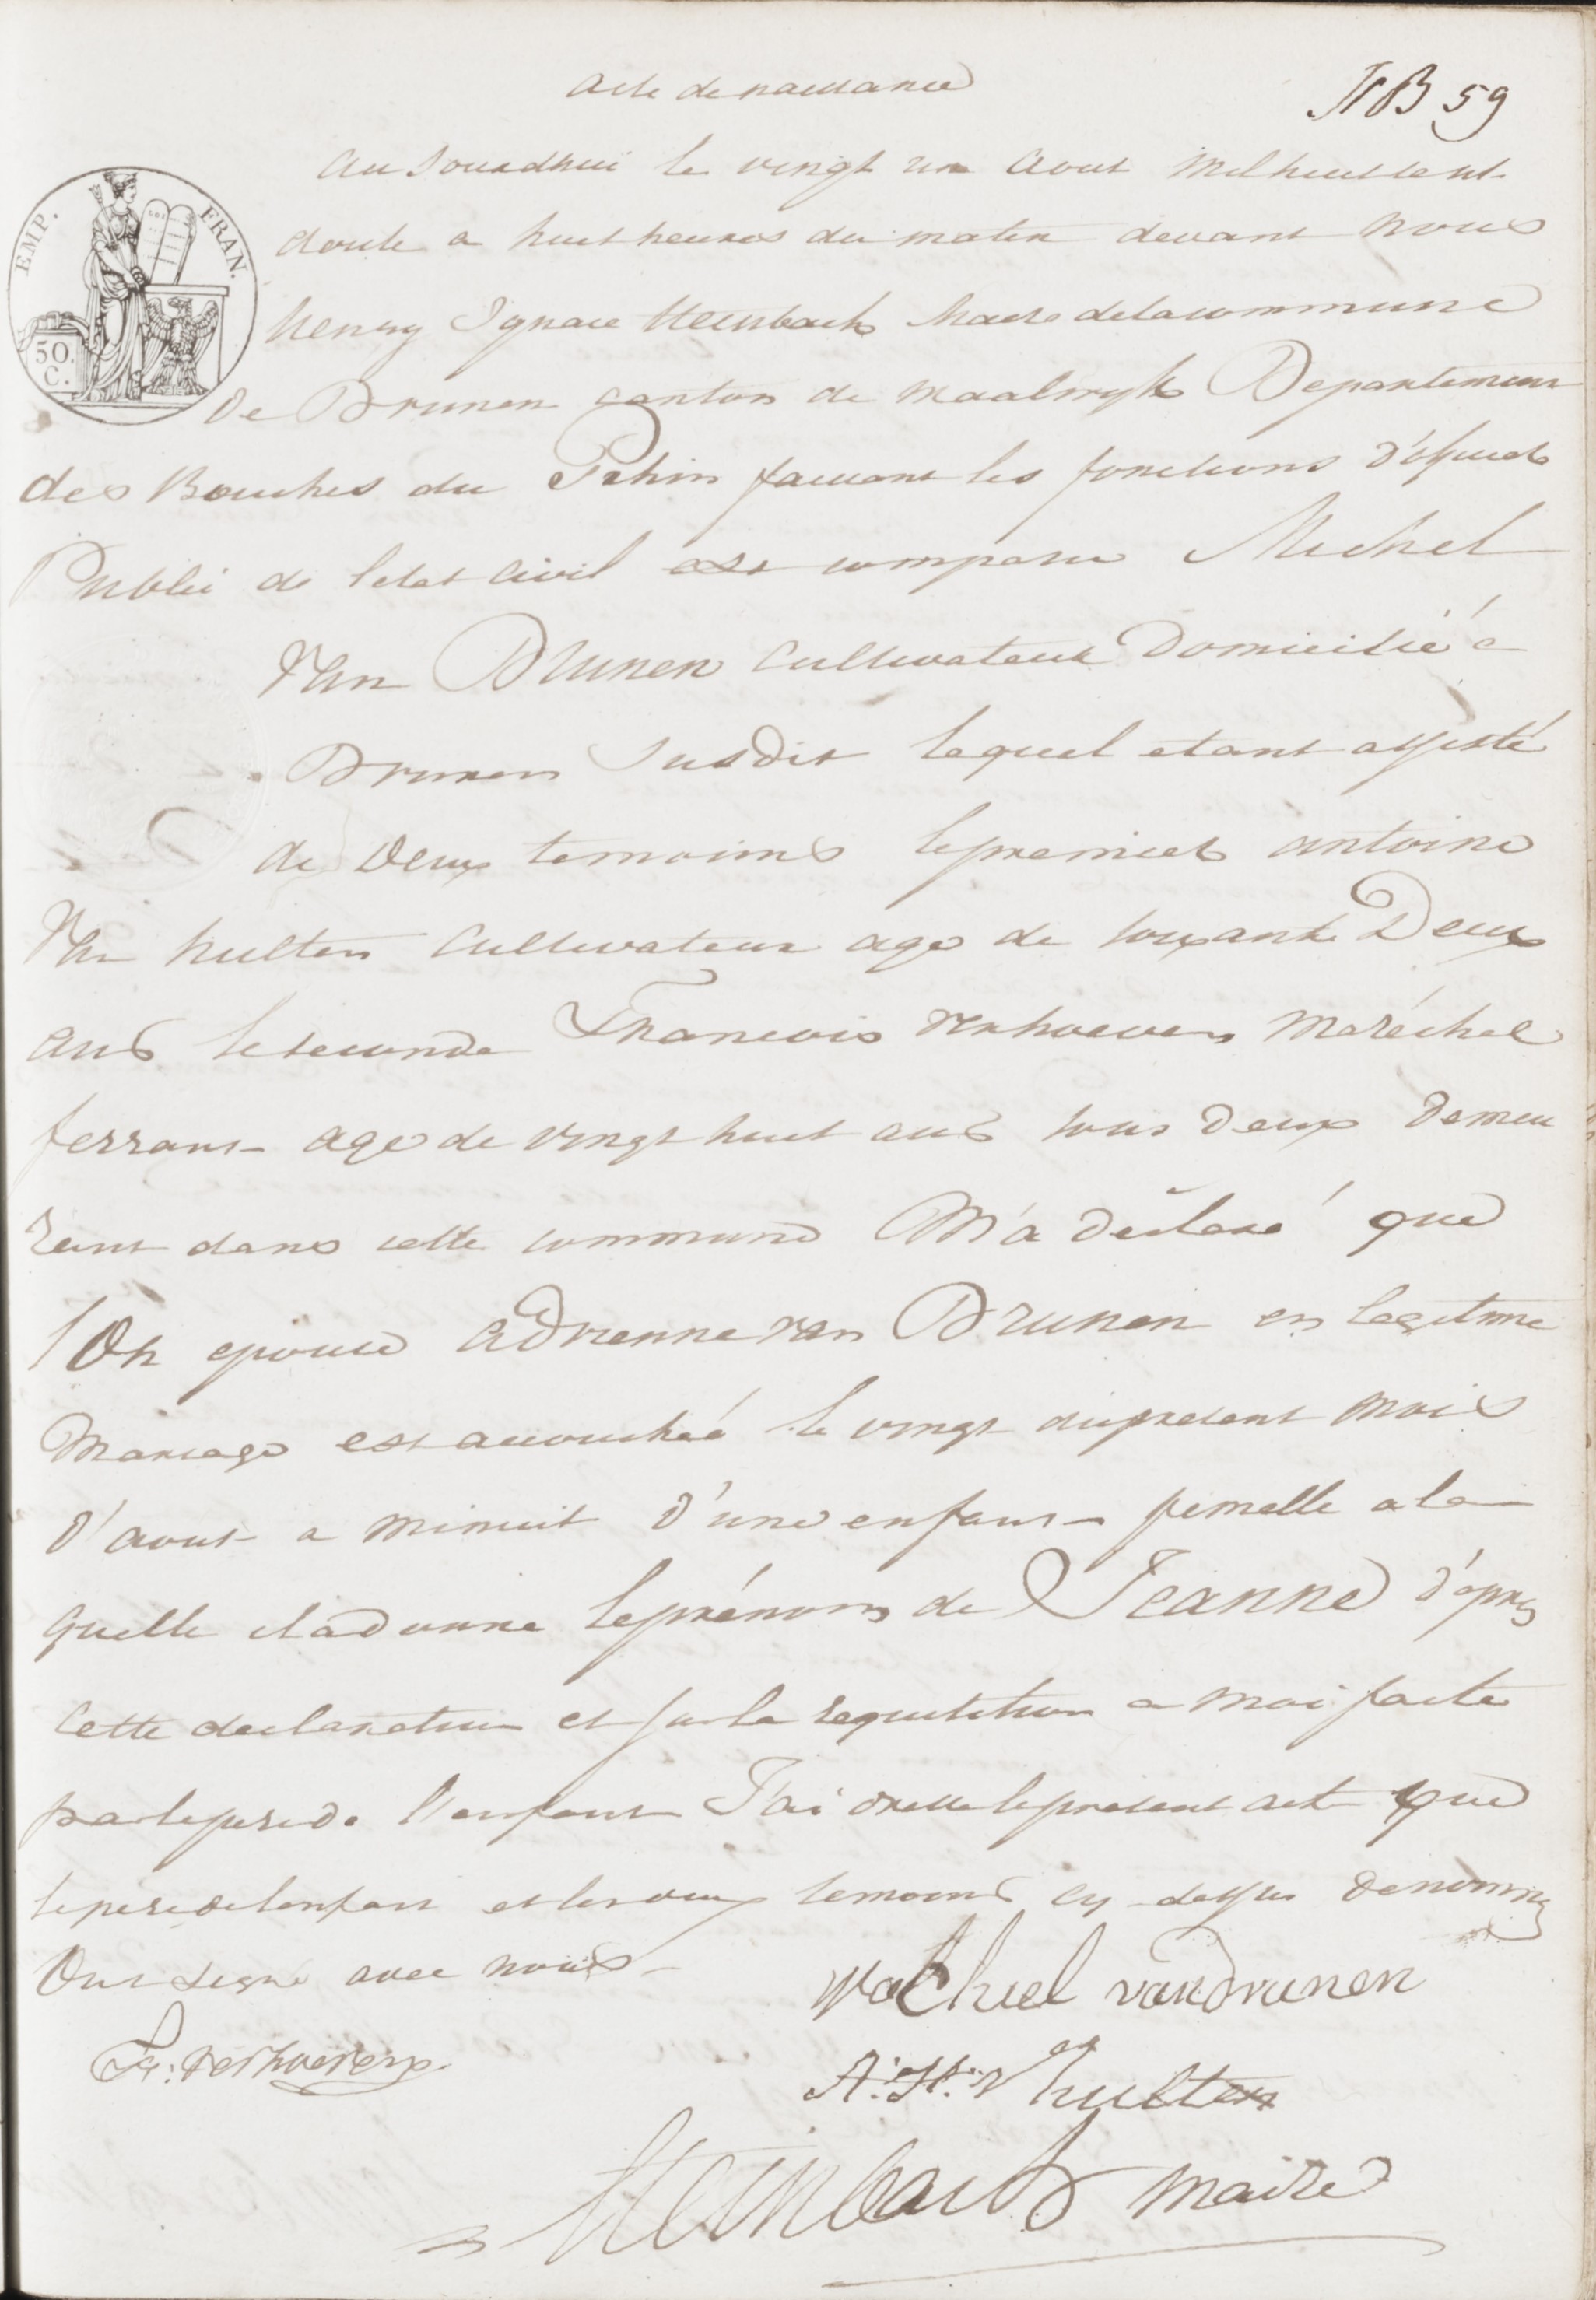 acte de naissance
N B 59
au Jourdhui le vingt un Aout Milhuitcent
douse a huit heures du matin devant Nous
EMP. FRAN.
50. C.
henry Ignace Steinbach Maire delacommune
de Drunen canton de Waalwyk Departement
des Bouches du Rhin faisant les fonctions d'officier
Public de letat Civil est comparu Michel
Van Drunen Cultivateur Domicilié a
Drunen Susdit lequel etant assisté
de Deux temoins lepremier antoine
Van hulten Cultivateur age de soixante Deux
ans le seconde Francois verhoeven Maréchal
ferrant age de vingt huit ans tous Deux Demeu
rant dans cette commune M'a déclaré que
son epouse adrienne van Drunen en legitime
Mariage est accouchée le vingt dupresent Mois
d'aout a minuit d'une enfant femelle ala
quelle iladonne leprénom de Jeanne d'apres
Cette declaration et sur la requisition a Moi faite
par lepere de l'enfant J'ai dresse lepresent acte que
lepere de lenfant et les deux temoins cy dessus denommes
Ont signe avec nous
Machiel van Drunen
Fr: verhoeven
A: H: V hulten
Steinbach maire